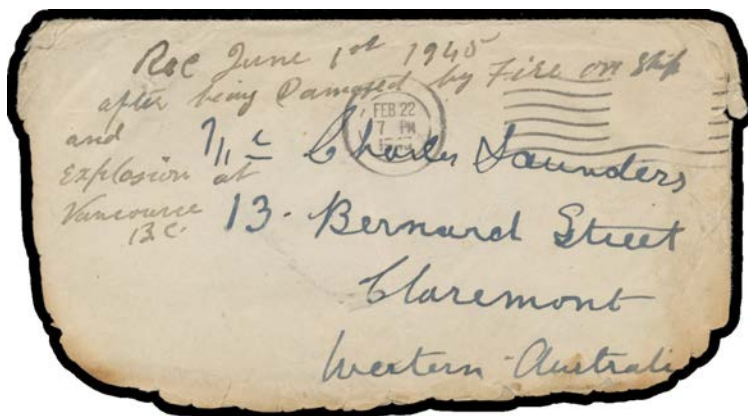 Rec June 1st 1945
after being Damaged by Fire on Ship
and
Explosion at
Vancouver
B.C.
FEB 22
7 PM
Mr Charles Saunders
13. Bernard Street
Claremont
Western Australi